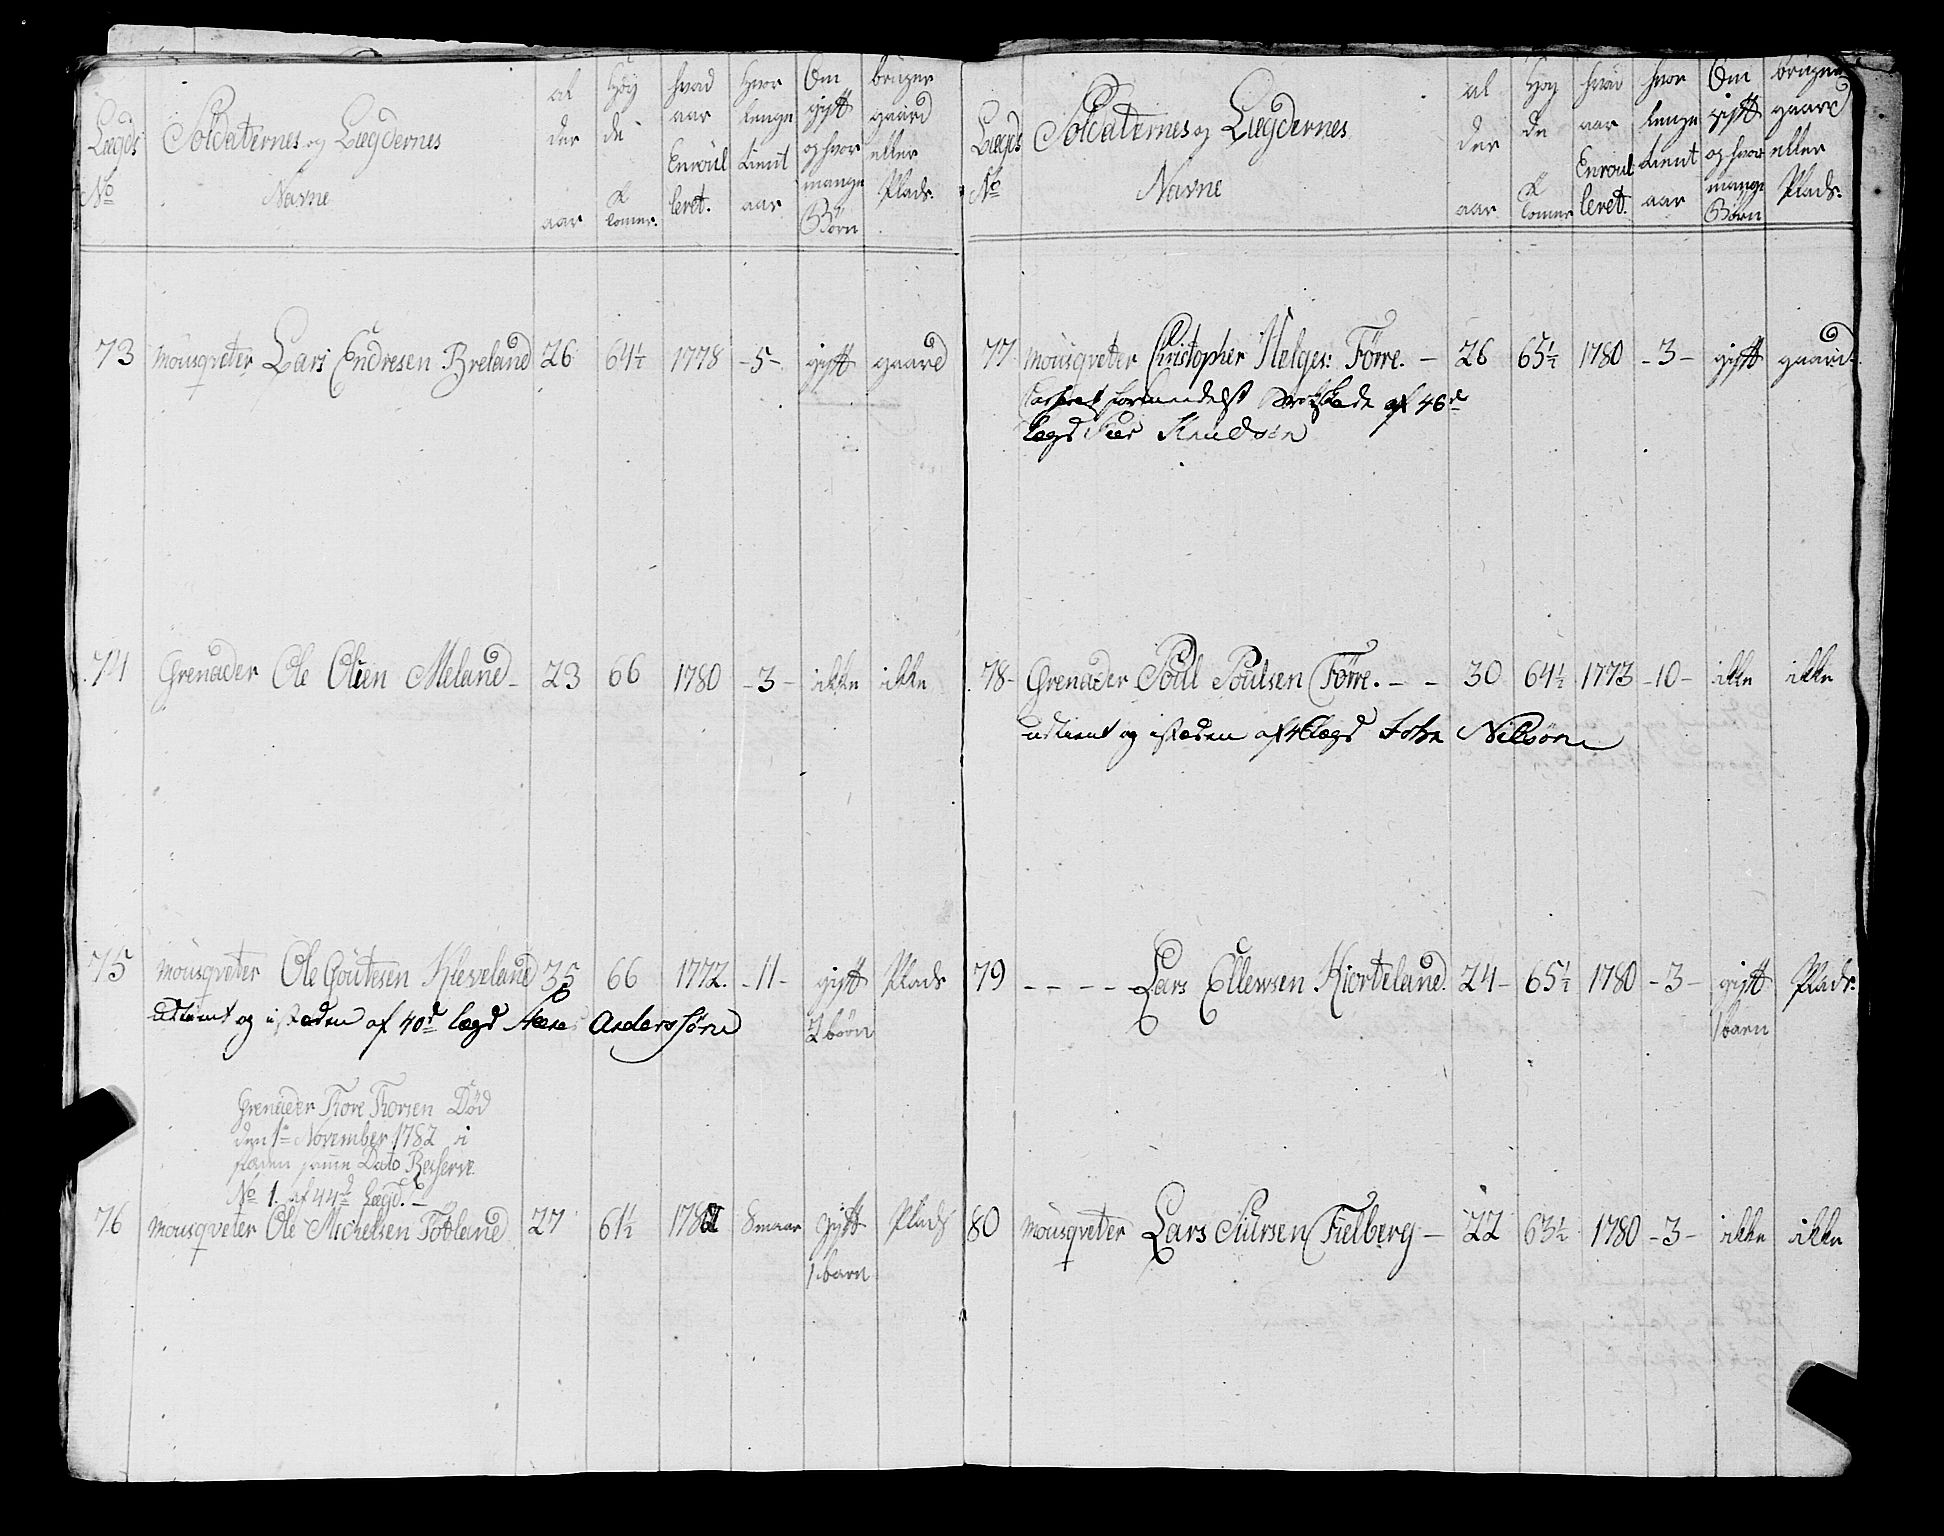 Lægds No | Soldaternes og Lægdernes Navne | al der aar | Höy de | hvad aar Enroul leret. | hvor lenge tient aar | Om gift og hvor mange Börn | bruger gaard eller Plads.
73 Mousqveter Lars Endresen Breland 26 64½ 1778 -5- gift gaard
74 Grenader Ole Olsen Meland- 23 66 1780 -3- ikke ikke
75 Mousqveter Ole Goutesen Kleveland 35 66 1772. -11- gift Plads
2 börn
udtient og i stæden af 40d lægd Anderssöne
Grenader Tore Torsen Död
den 1te November 1782 i
stæden samme Dato Reserve
No 1. af 44de Lægd.-
76 Mousqveter Ole Michelsen Totland 27 61½ 8 maar gift Plads
1 barn
Lægds No | Soldaternes og Lægdernes Navne | al der aar | Höy de | hvad aar Enroul leret. | hvor lenge tient aar | Om gift og hvor mange Börn | bruger gaard eller Plads.
77 Mousqveter Christopher Helges: Förre. - 26 65½ 1780 -3- gift gaard.
formedelst af 46de
lægd Knudsön
78- Grenader Poul Poulsen Förre. - - 30 64½ 1773 -10- ikke ikke
udtient og i stæden af lægd John Nilsöne
79 - - - - Lars Ellewsen Hiorteland. 24- 65½ 1780 -3- gift Plads.
1 barn
80 Mousqveter Lars Siursen Fielberg - 22 63½ 1780 -3- ikke ikke